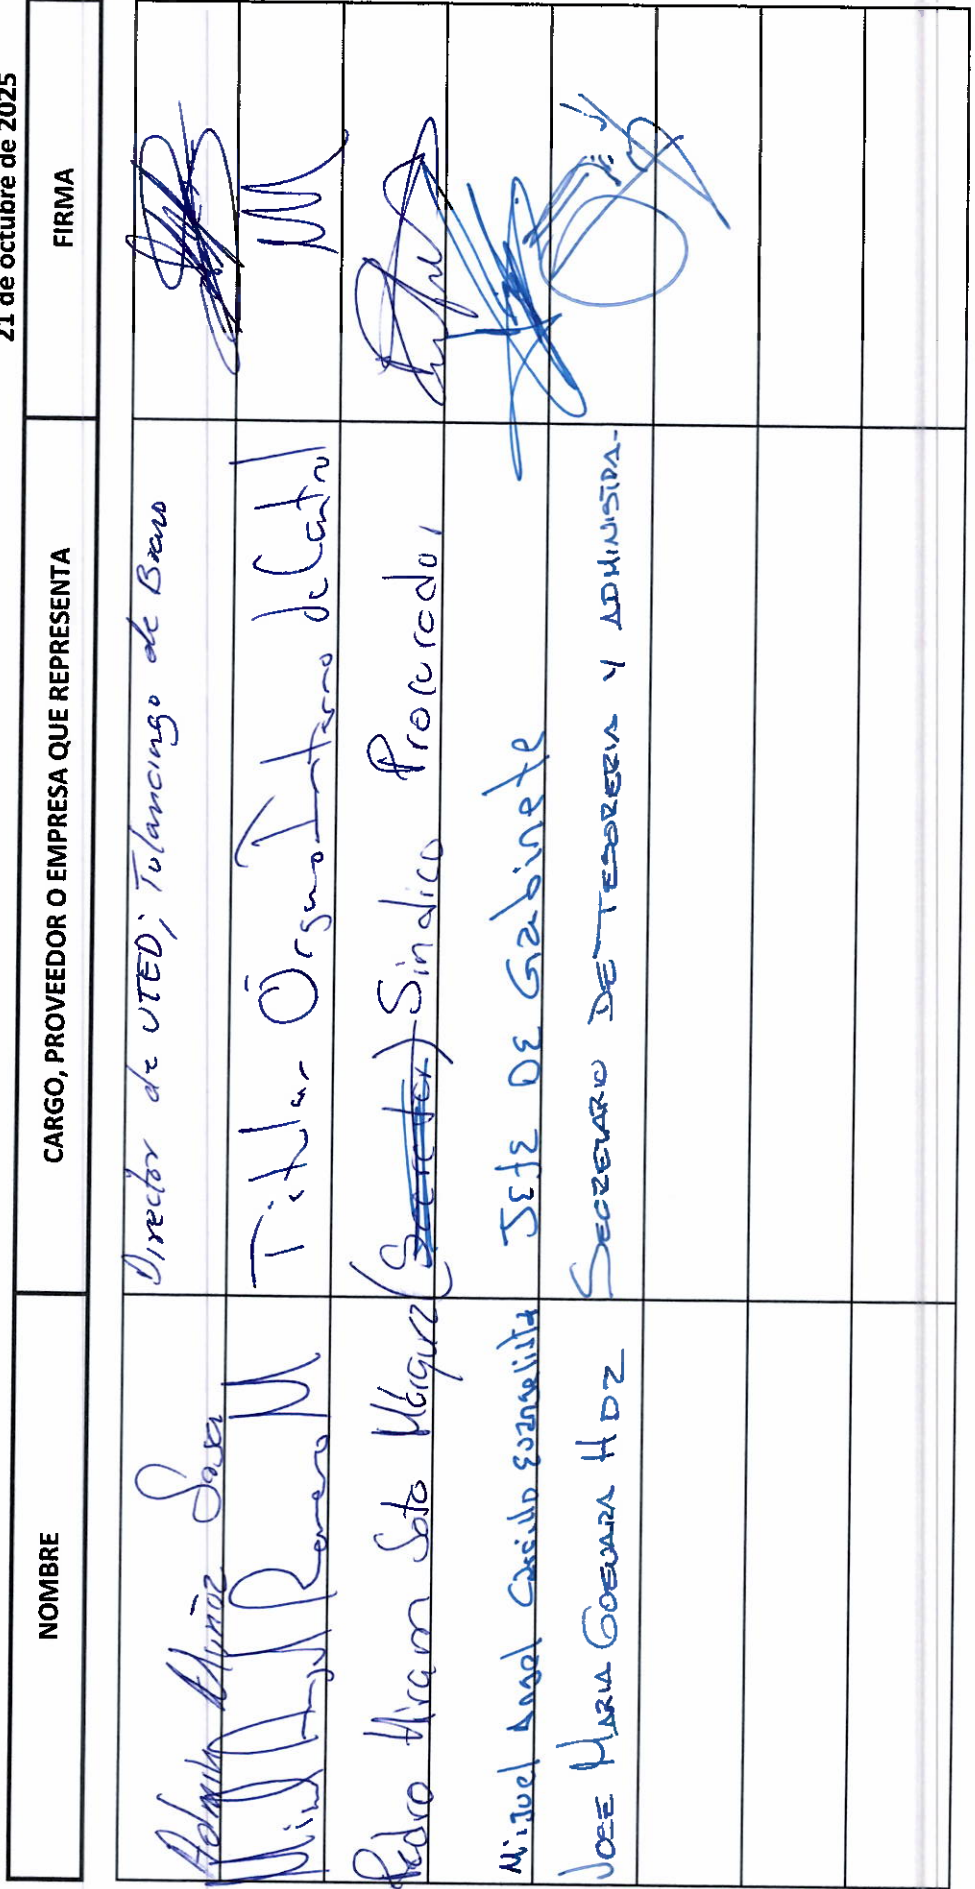 21 de octubre de 2025
NOMBRE CARGO, PROVEEDOR O EMPRESA QUE REPRESENTA FIRMA
Muñoz Sosa Director de UTED; Tulancingo de Bravo
Romero M Titular Órgano Interno de Control
Pedro Hiram Soto Márquez (Secretar) Sindico Procurador
Miguel Angel Castillo Evangelista JEFE DE Gabinete
JOSE MARIA GUEVARA HDZ SECRETARIO DE TESORERIA Y ADMINISTRA-